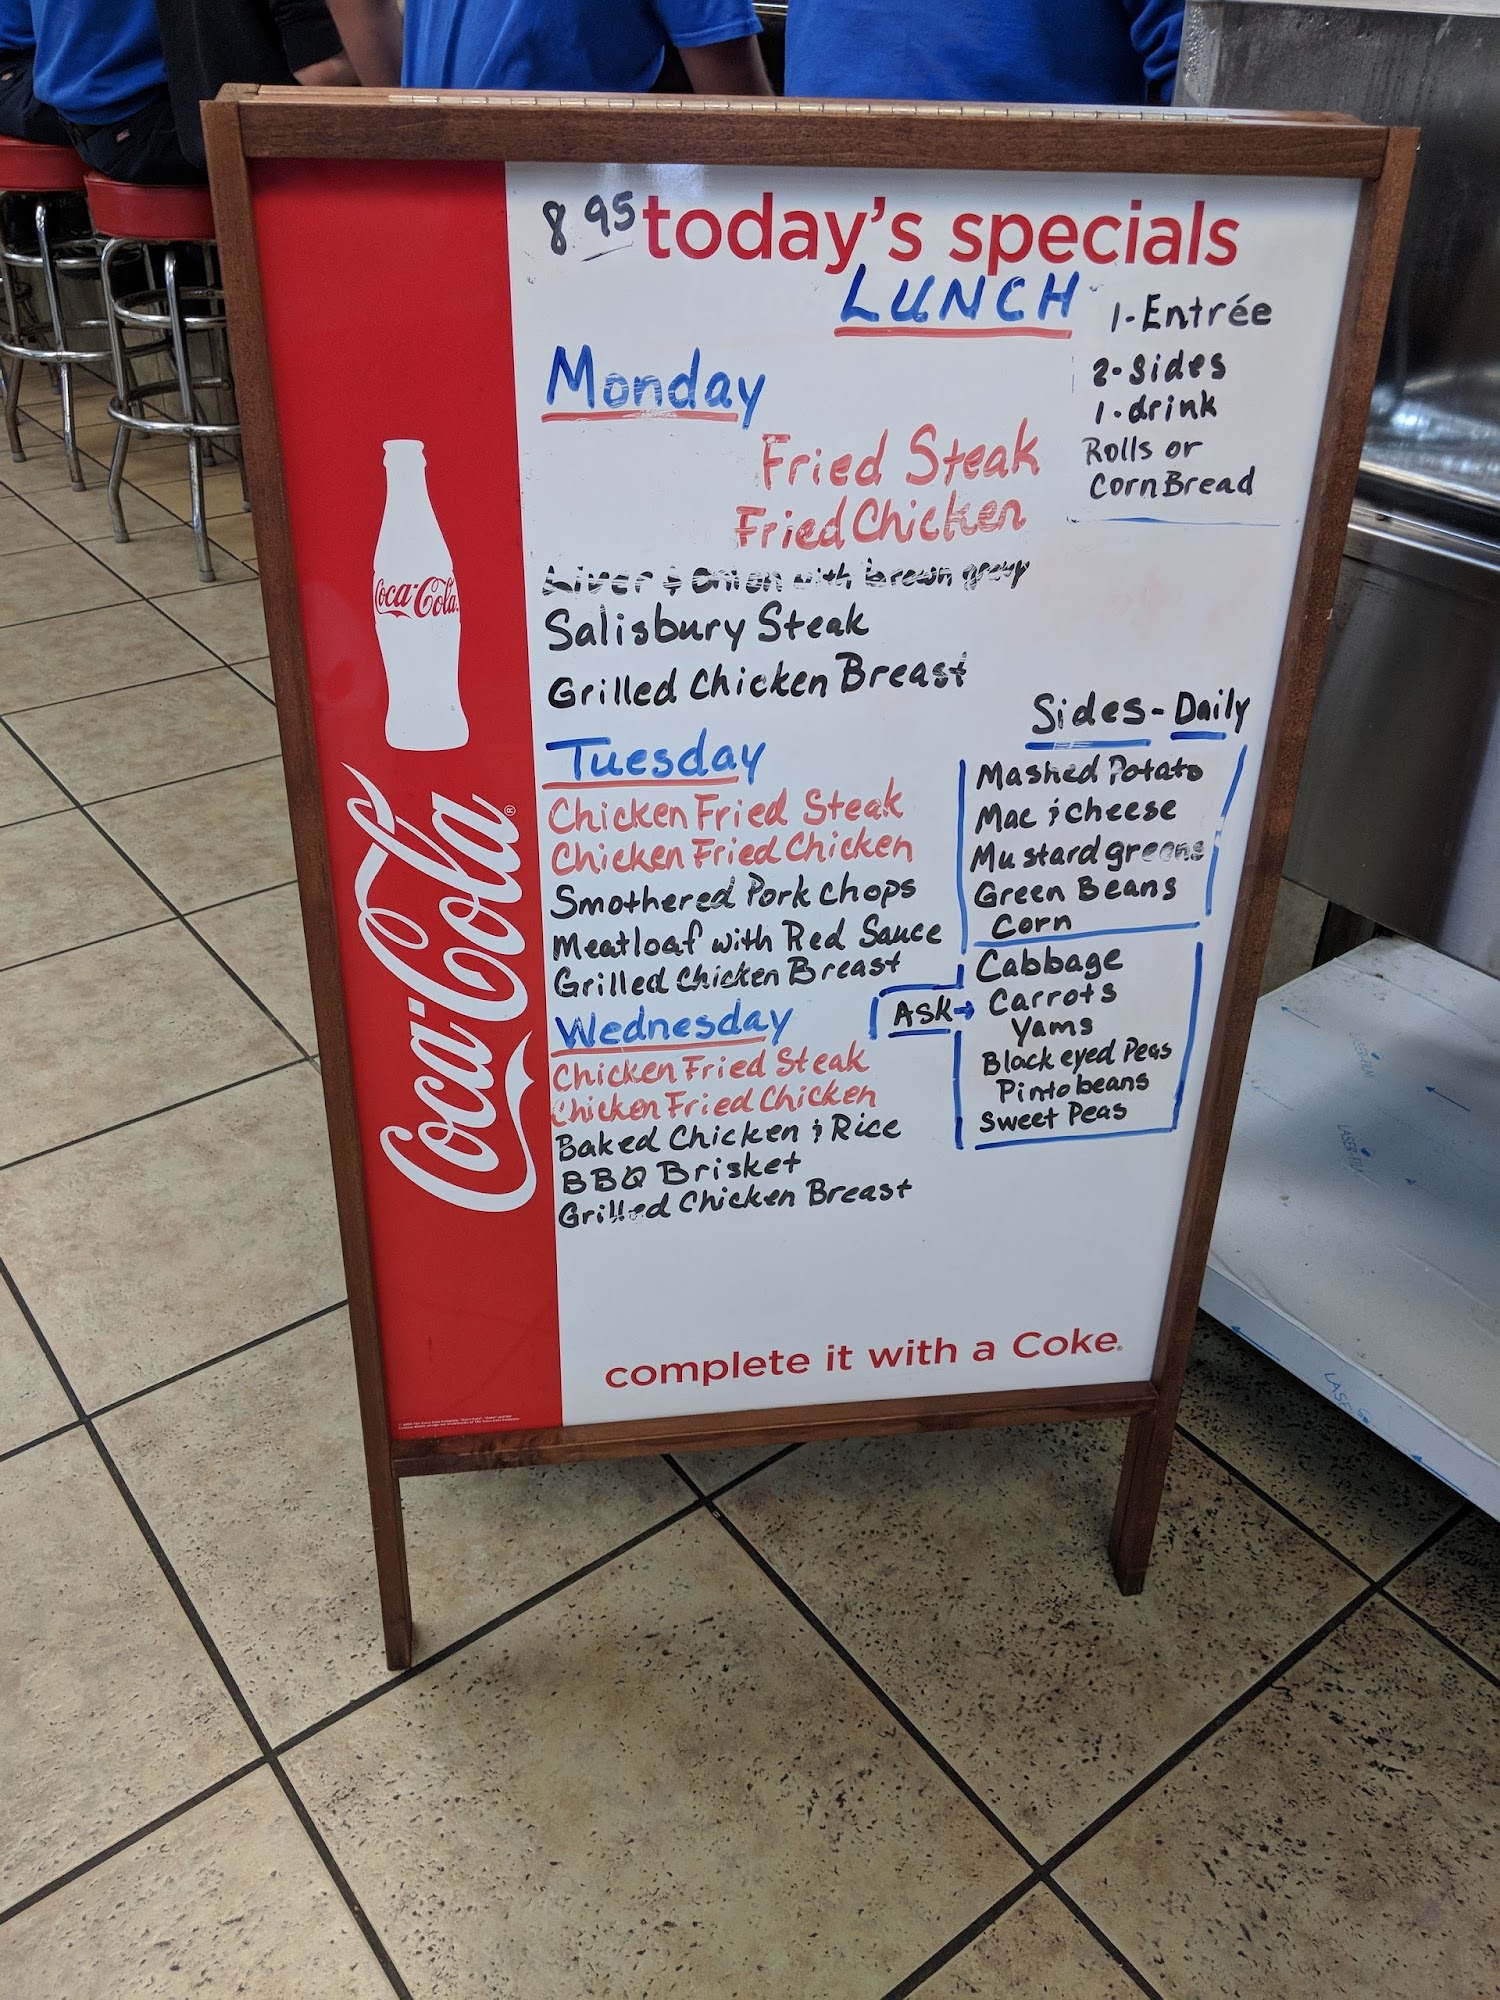 8 95 today's specials
LUNCH
1-Entrée
2-sides
1-drink
Rolls or
CornBread
Monday
Fried Steak
Fried Chicken
Liver & onion with brown gravy
Salisbury Steak
Grilled Chicken Breast
Tuesday
Chicken Fried Steak
Chicken Fried Chicken
Smothered Pork chops
Meatloaf with Red Sauce
Grilled Chicken Breast
Wednesday
Chicken Fried Steak
Chicken Fried Chicken
Baked Chicken & Rice
BBQ Brisket
Grilled Chicken Breast
Sides - Daily
Mashed Potato
Mac & cheese
Mustard greens
Green Beans
Corn
Ask →
Cabbage
Carrots
Yams
Black eyed Peas
Pinto beans
Sweet Peas
complete it with a Coke.
Coca-Cola
Coca-Cola®